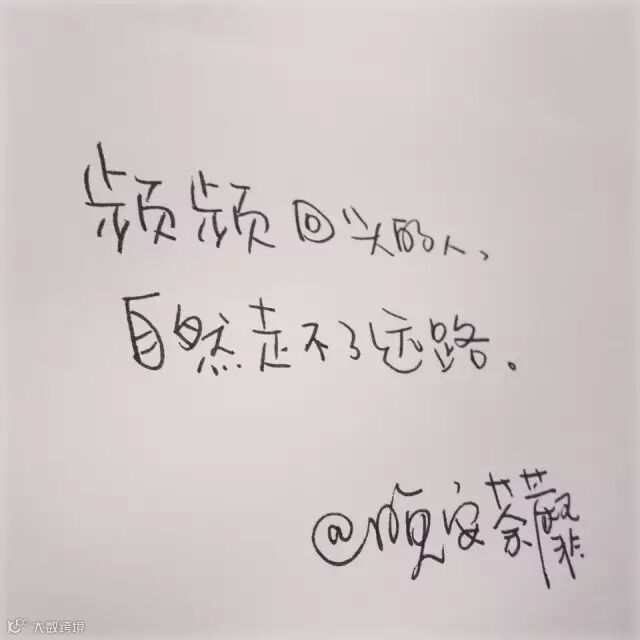 频频回头的人、
自然走不了远路。
@顺安
大数跨境